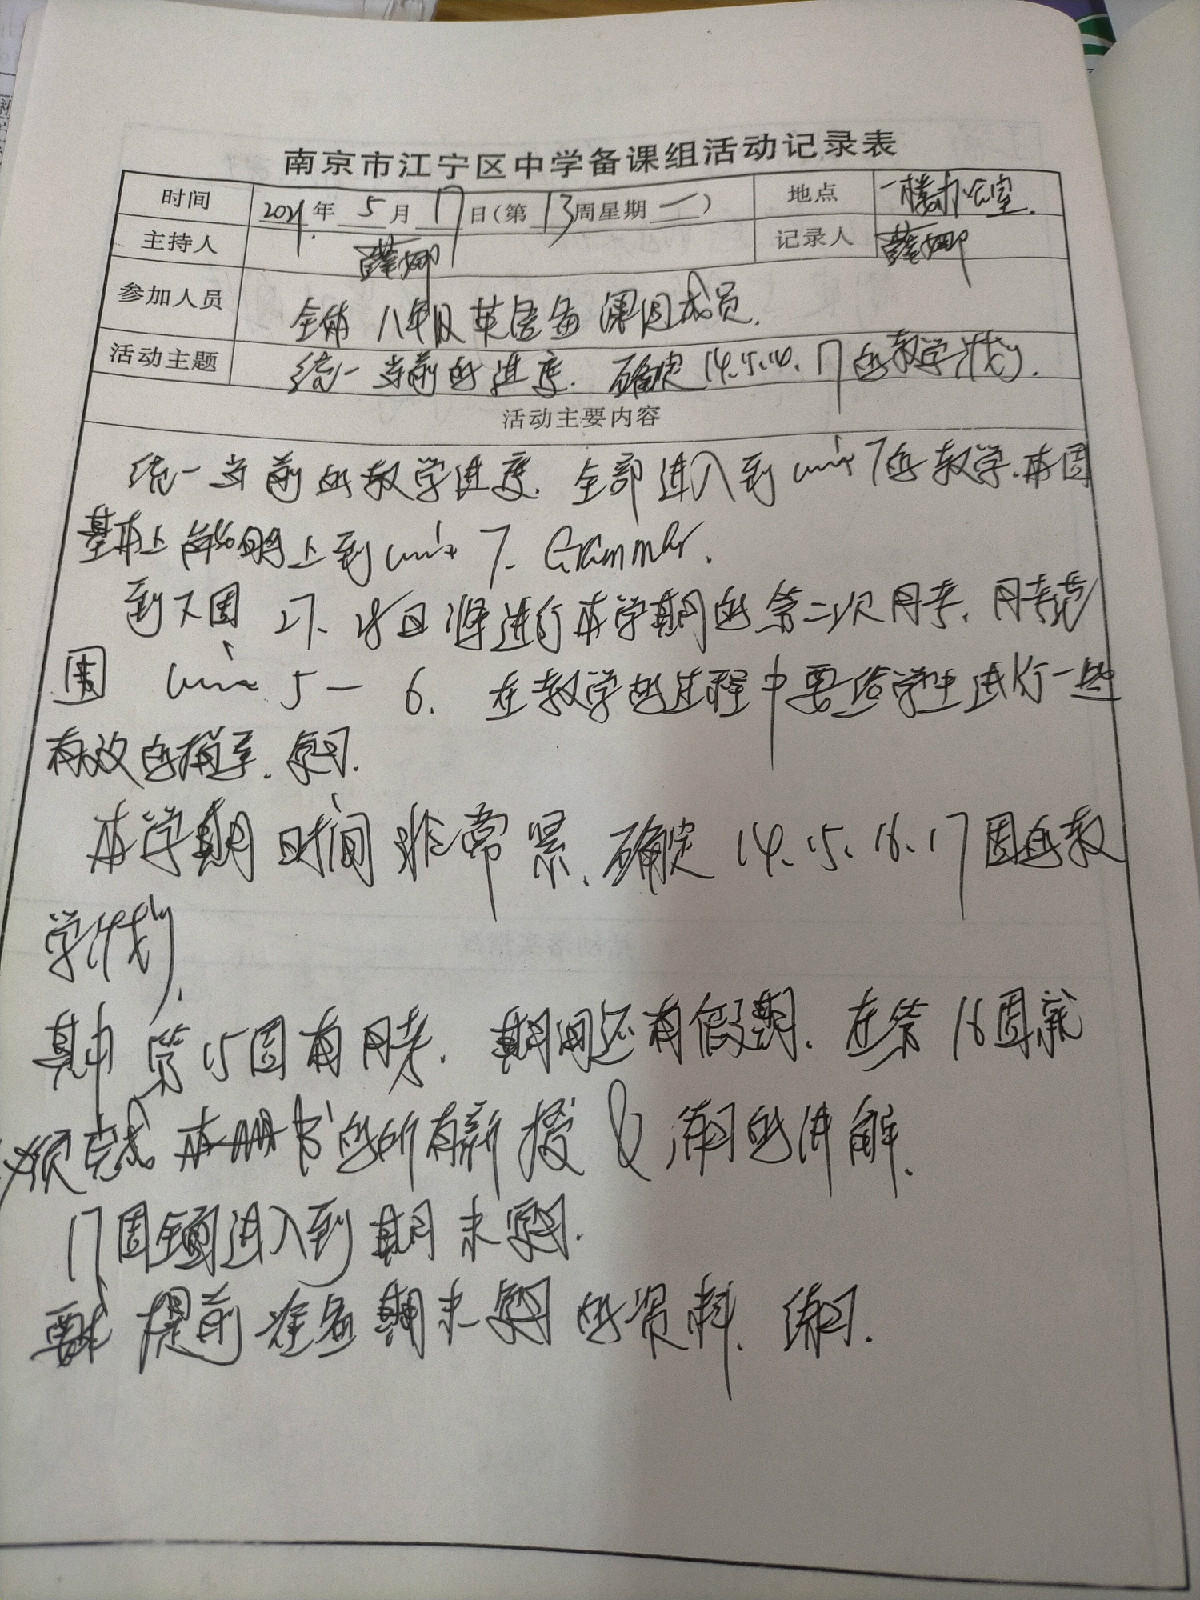 南京市江宁区中学备课组活动记录表
时间 2021年 5 月 17 日(第 13 周星期 一) 地点 一楼办公室.
主持人 薛娜 记录人 薛娜
参加人员 全体 八年级 英语备 课组成员.
活动主题 统一当前的进度. 确定14.15.16.17的教学计划.
活动主要内容
统一当前的教学进度. 全部进入到unit 7的教学.本周
基本上能够上到unit 7. Grammar.
到下周 27、28日将进行本学期的第二次月考. 月考范
围 unit 5 — 6. 在教学的过程中要给学生进行一些
有效的指导. 复习.
本学期时间非常紧. 确定 14、15、16、17周的教
学计划.
其中 第15周有月考. 期间还有假期. 在第 16周就
必须完成 本册书的所有新授 & 练习的讲解.
17周全面进入到 期末复习.
要求 提前准备期末复习的资料. 练习.